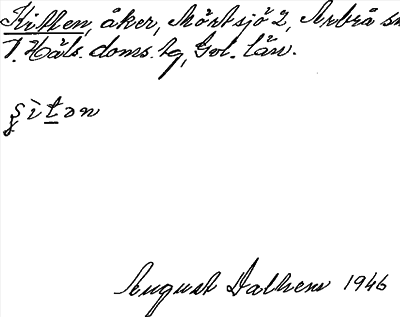 Kitten, åker, Mörtsjö 2, Arbrå sn
V. Häls. doms. tg, Gvl. län.
ʂìtən
August Dalhem 1946